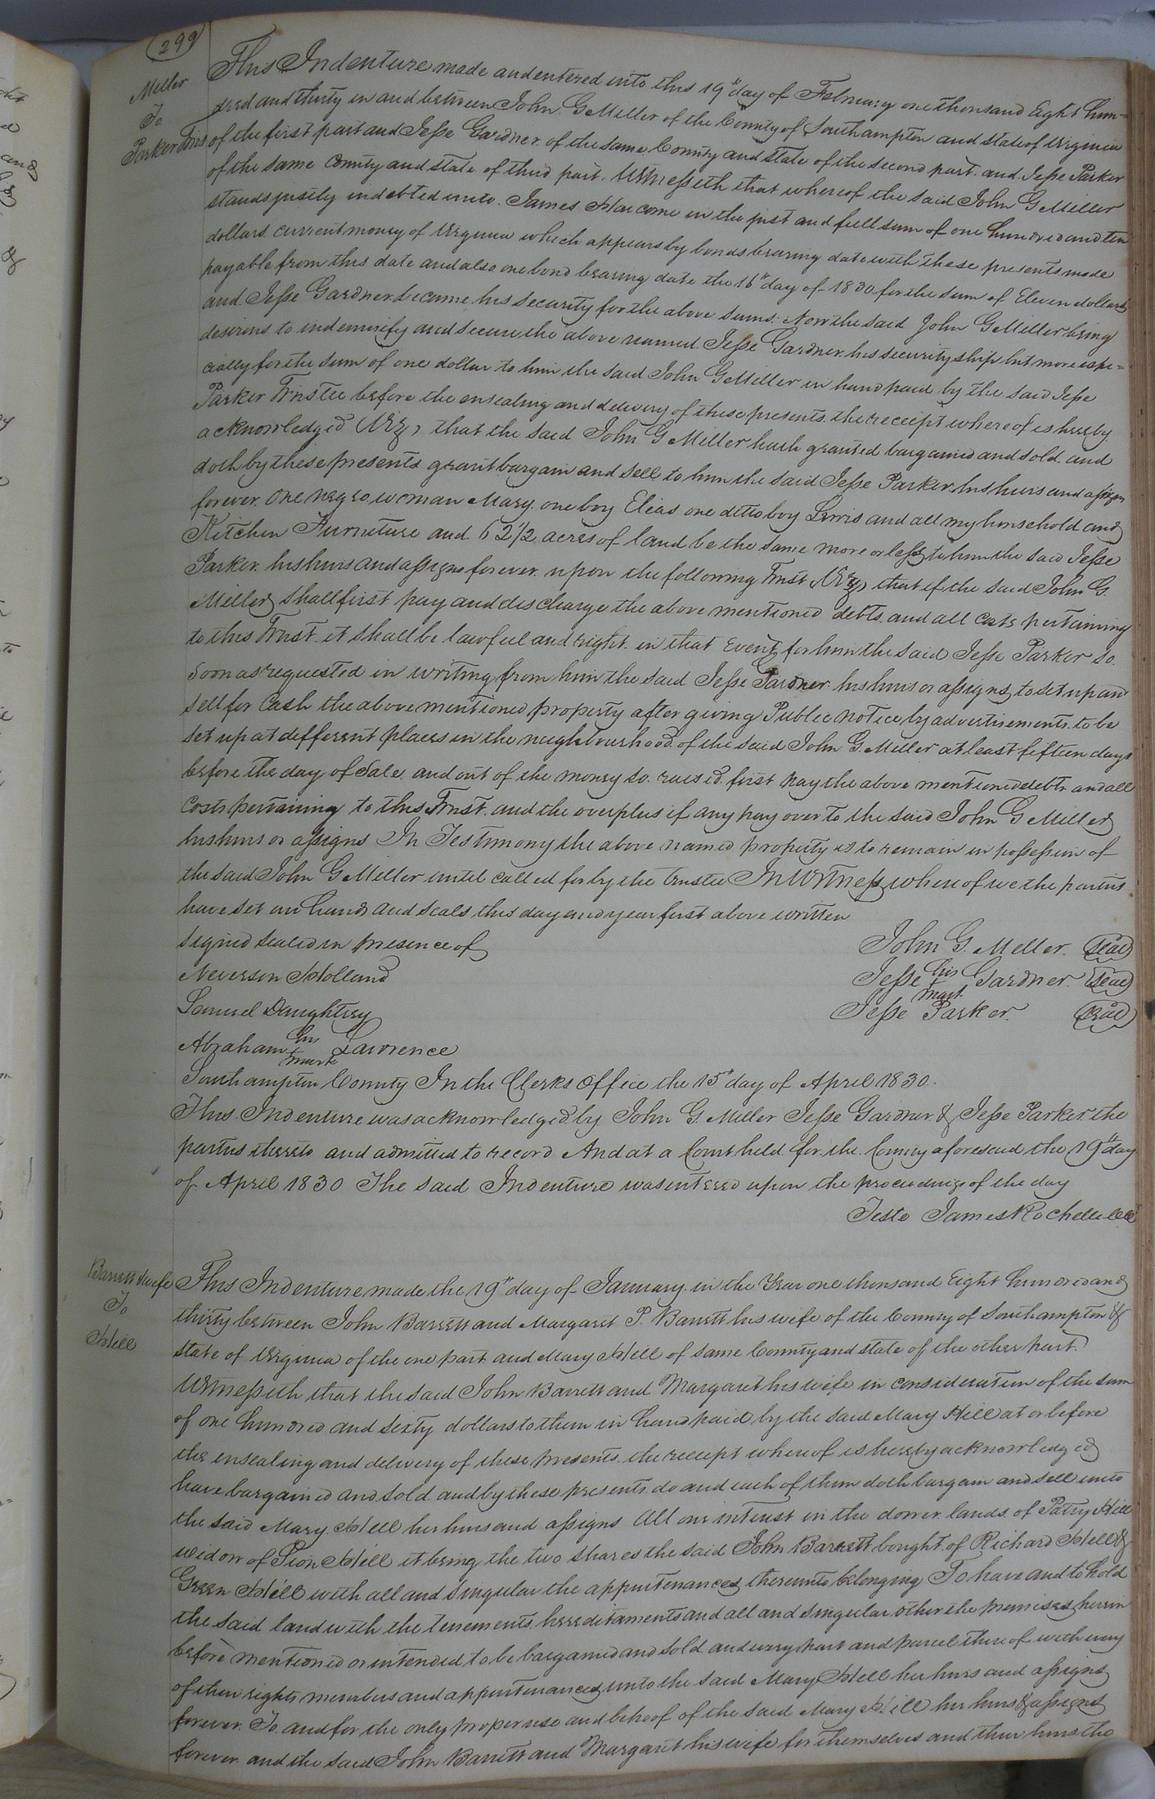 299
Miller
To
Parker Trus
This Indenture made and entered into this 19th day of February one thousand Eight hun=
dred and thirty in and between John G Miller of the County of Southampton and state of Virginia
of the first part and Jesse Gardner of the same County and state of the second part. and Jesse Parker
of the same County and state of third part. Witnesseth that whereof the said John G Miller
stands justly indebted unto James Harcome in the just and full sum of one hundred and ten
dollars current money of Virginia which appears by bonds bearing date with these presents made
payable from this date and also one bond bearing date the 16th day of 1830 for the sum of Eleven dollars
and Jesse Gardner became his security for the above sums. Now the said John G Miller being
desirous to indemnify and secure the above named Jesse Gardner his securityship but more espe=
cially for the sum of one dollar to him the said John G Miller in hand paid by the said Jesse
Parker Trustee before the ensealing and delivery of these presents the receipt whereof is hereby
acknowledged (Viz) that the said John G Miller hath granted bargained and sold and
doth by these presents grant bargain and sell to him the said Jesse Parker his heirs and assigns
forever. One negro woman Mary one boy Elias one ditto boy Lewis and all my household and
Kitchen Furniture and 62 1/2 acres of land be the same more or less to him the said Jesse
Parker his heirs and assigns forever upon the following Trust (Viz) that if the said John G.
Miller shall first pay and discharge the above mentioned debts and all costs pertaining
to this Trust. it shall be lawful and right in that Event for him the said Jesse Parker so
soon as requested in writing from him the said Jesse Gardner his heirs or assigns to set up and
sell for Cash the above mentioned property after giving Public notice by advertisements to be
set up at different places in the neighbourhood of the said John G Miller at least fifteen days
before the day of Sale and out of the money so raised first pay the above mentioned debts and all
costs pertaining to this Trust and the overplus if any pay over to the said John G Miller
his heirs or assigns In Testimony the above named property is to remain in possession of
the said John G Miller until called for by the Trustee In Witness whereof we the parties
have set our hands and seals this day and year first above written
signed sealed in presence of
John G. Miller. (Seal)
Neverson Holland
Jesse his mark Gardner (Seal)
Samuel Daughtrey
Jesse Parker. (Seal)
Abraham his mark Lawrence
Southampton County In the Clerks office the 15th day of April 1830.
This Indenture was acknowledged by John G. Miller Jesse Gardner & Jesse Parker the
parties thereto and admitted to record And at a Court held for the County aforesaid the 19th day
of April 1830 The said Indenture was entered upon the proceedings of the day
Teste James Rochelle
Barrett & wife
To
Hill
This Indenture made the 19th day of January in the Year one thousand Eight hundred and
thirty between John Barrett and Margaret P. Barrett his wife of the County of Southampton &
state of Virginia of the one part and Mary Hill of same County and state of the other part.
Witnesseth that the said John Barrett and Margaret his wife in consideration of the sum
of one hundred and sixty dollars to them in hand paid by the said Mary Hill at or before
the ensealing and delivery of these presents the receipt whereof is hereby acknowledged
have bargained and sold and by these presents do and each of them doth bargain and sell unto
the said Mary Hill her heirs and assigns All our interest in the dower lands of Patsy Hill
widow of Hill it being the two shares the said John Barrett bought of Richard Hill &
Green Hill with all and singular the appurtenances thereunto belonging To have and to hold
the said land with the tenements hereditaments and all and singular other the premises herein
before mentioned or intended to be bargained and sold and every part and parcel thereof with every
of their rights members and appurtenances unto the said Mary Hill her heirs and assigns
forever. To and for the only proper use and behoof of the said Mary Hill her heirs & assigns
forever. and the said John Barrett and Margaret his wife for themselves and their heirs the